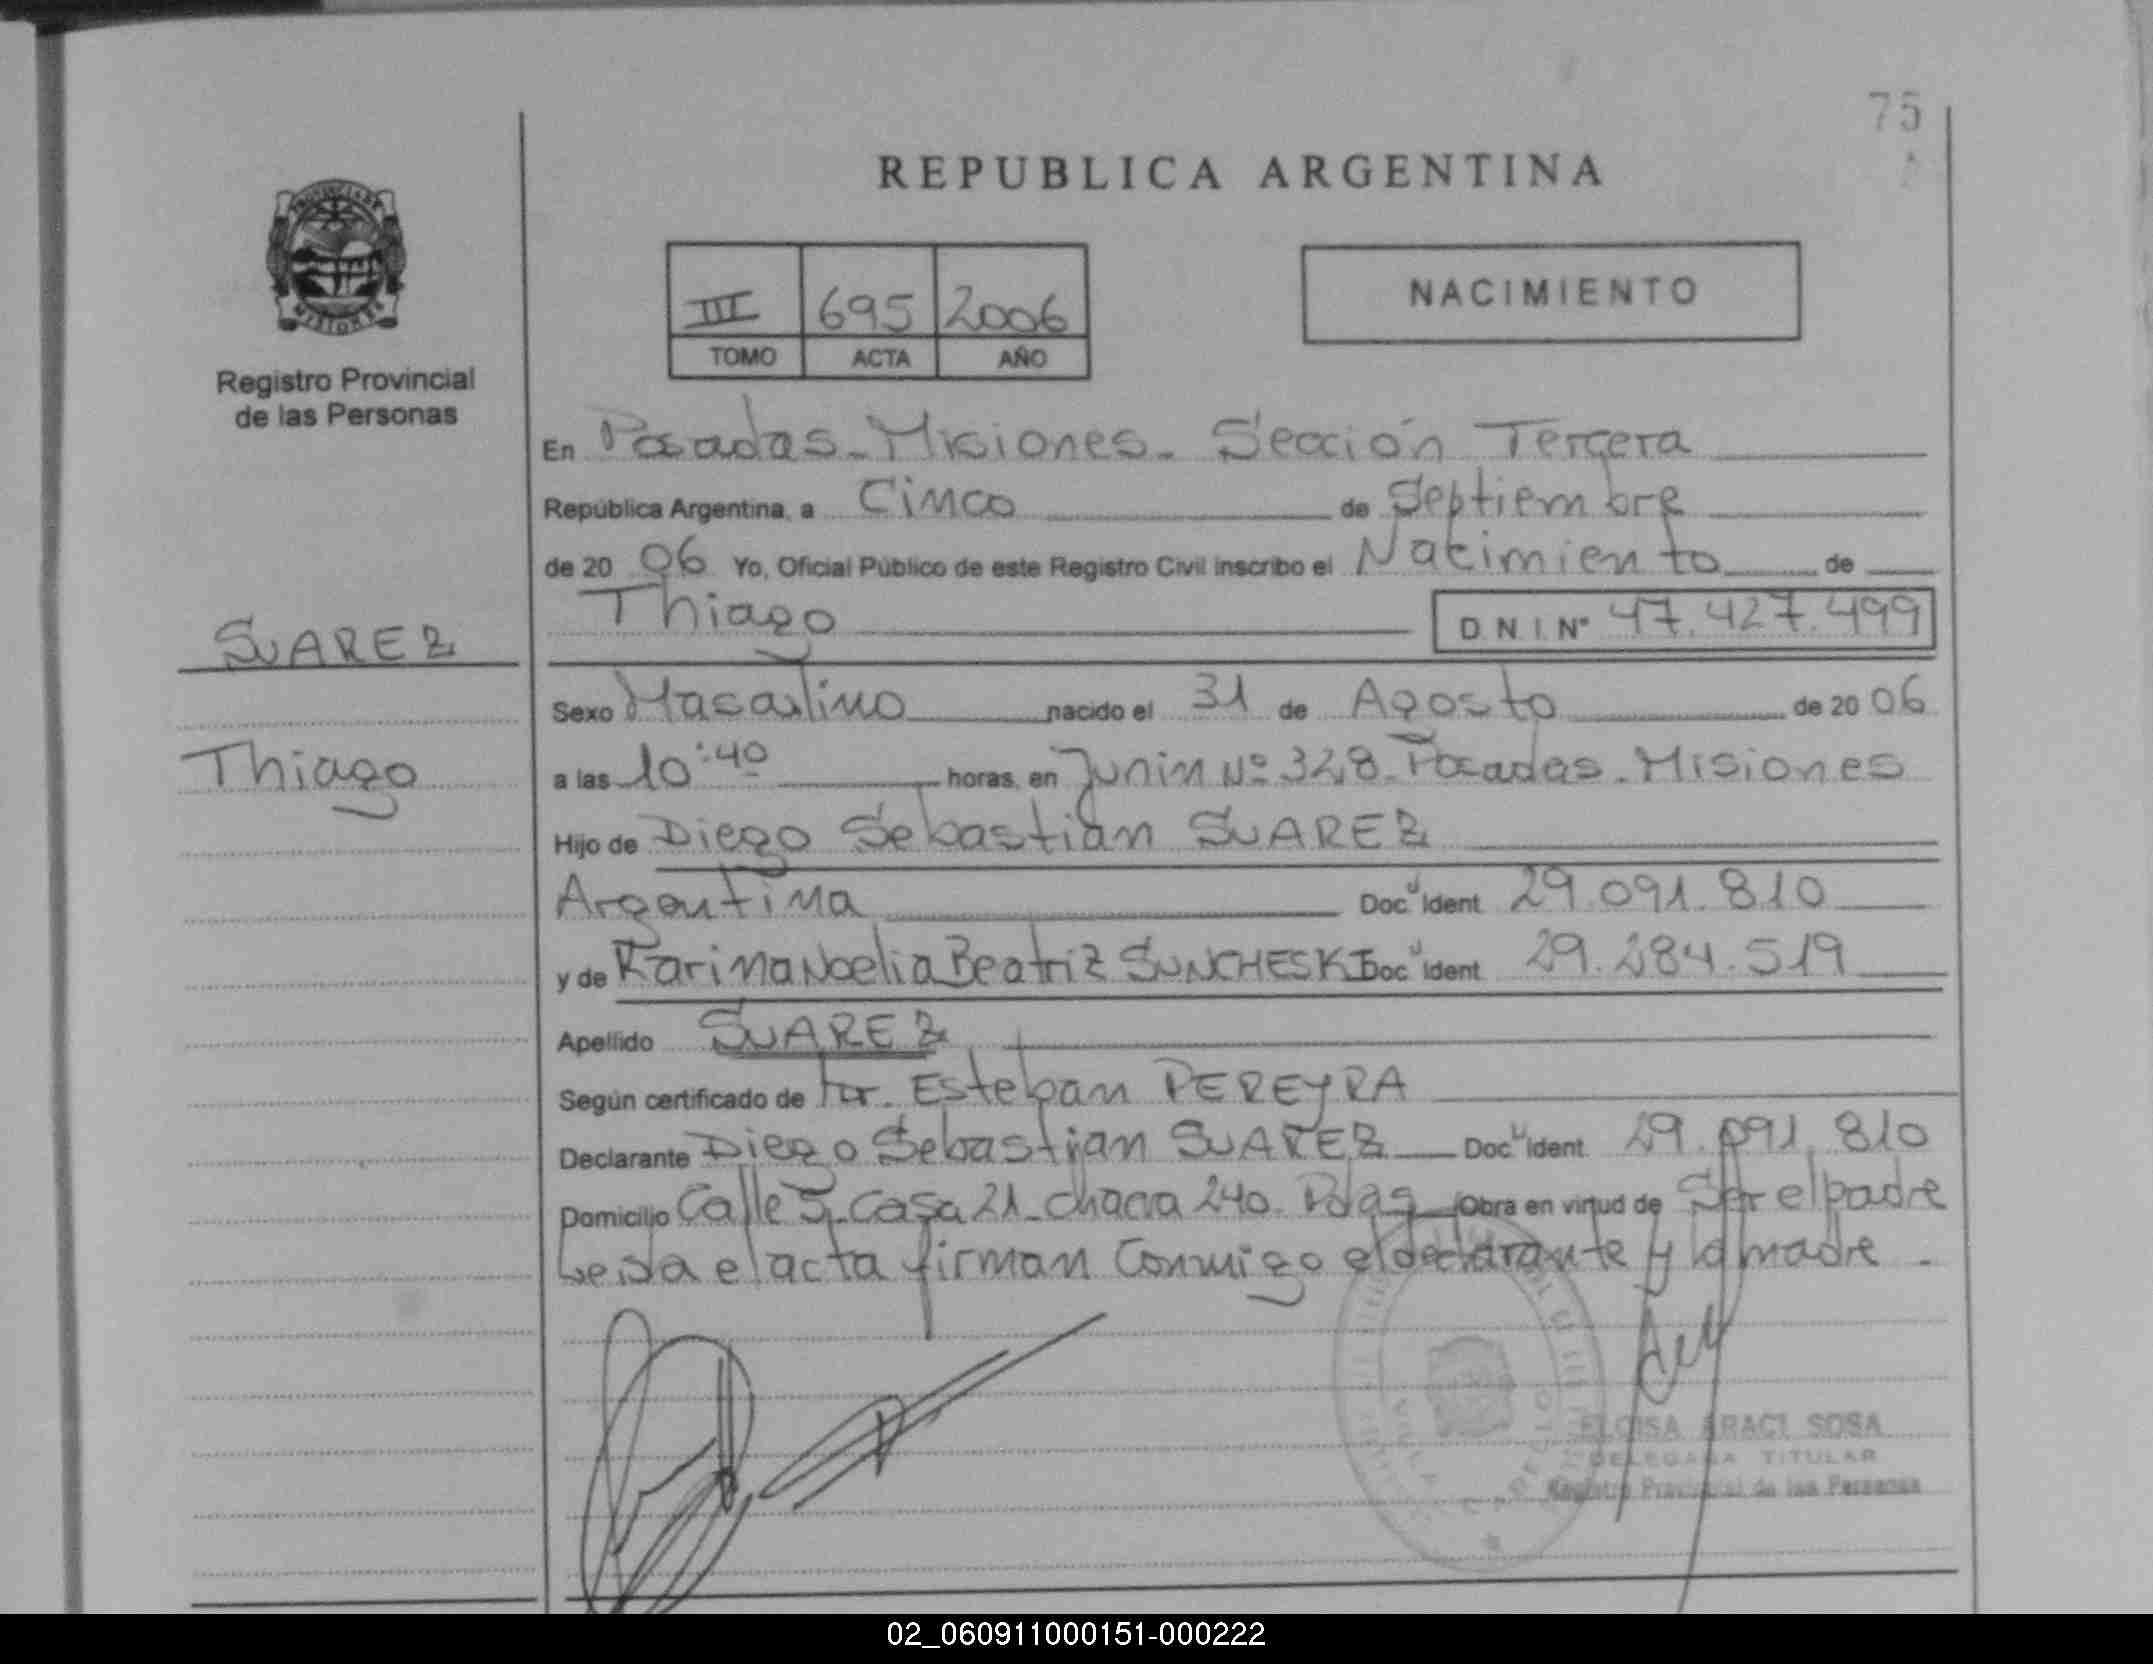 75
REPUBLICA ARGENTINA
PROVINCIA DE
MISIONES
Registro Provincial
de las Personas
III 695 2006
TOMO ACTA AÑO
NACIMIENTO
En Posadas - Misiones - Sección Tercera
República Argentina, a Cinco de Septiembre
de 20 06 Yo, Oficial Público de este Registro Civil inscribo el Nacimiento de
Thiago D.N.I. Nº 47.427.499
SUAREZ
Thiago
Sexo Masculino nacido el 31 de Agosto de 20 06
a las 10:40 horas, en Junin Nº 328 - Posadas - Misiones
Hijo de Diego Sebastián SUAREZ
Argentina Doc. Ident. 29.091.810
y de Karina Noelia Beatriz SUNCHESKI Doc. Ident. 29.284.519
Apellido SUAREZ
Según certificado de Dr. Esteban PEREYRA
Declarante Diego Sebastián SUAREZ Doc. Ident. 29.091.810
Domicilio Calle 5 - Casa 21 - Chacra 240 - Pdas Obra en virtud de Ser el padre
Leida el acta firman Conmigo el declarante y la madre -
ELOISA ARACI SOSA
DELEGADA TITULAR
Registro Provincial de las Personas
02_060911000151-000222